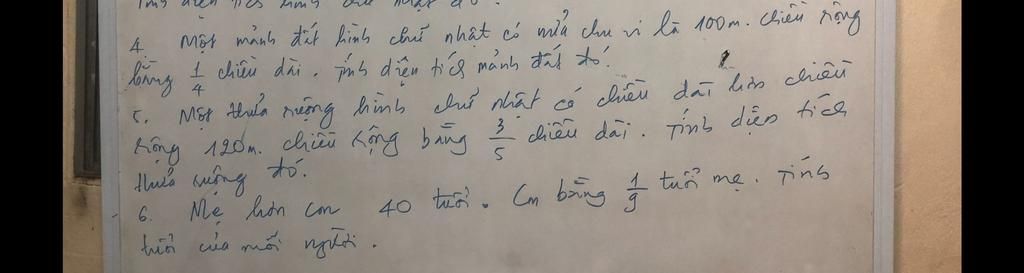 Tính diện tích hình chữ nhật đó.
4. Một mảnh đất hình chữ nhật có nửa chu vi là 100m. chiều rộng
bằng 1/4 chiều dài. Tính diện tích mảnh đất đó.
5. Một thửa ruộng hình chữ nhật có chiều dài hơn chiều
rộng 120m. chiều rộng bằng 3/5 chiều dài. Tính diện tích
thửa ruộng đó.
6. Mẹ hơn con 40 tuổi. Con bằng 1/9 tuổi mẹ. Tính
tuổi của mỗi người.